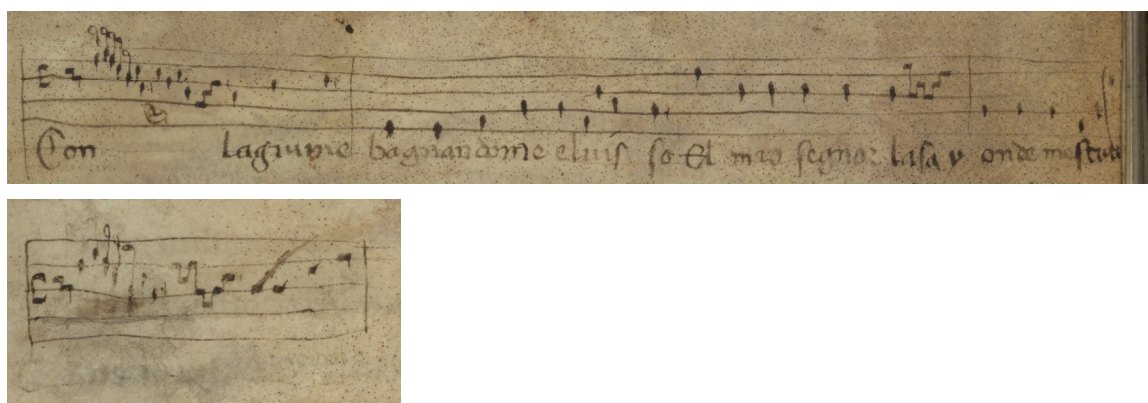 Con lagrime bagnandome eluis so El mio segnor lasay onde